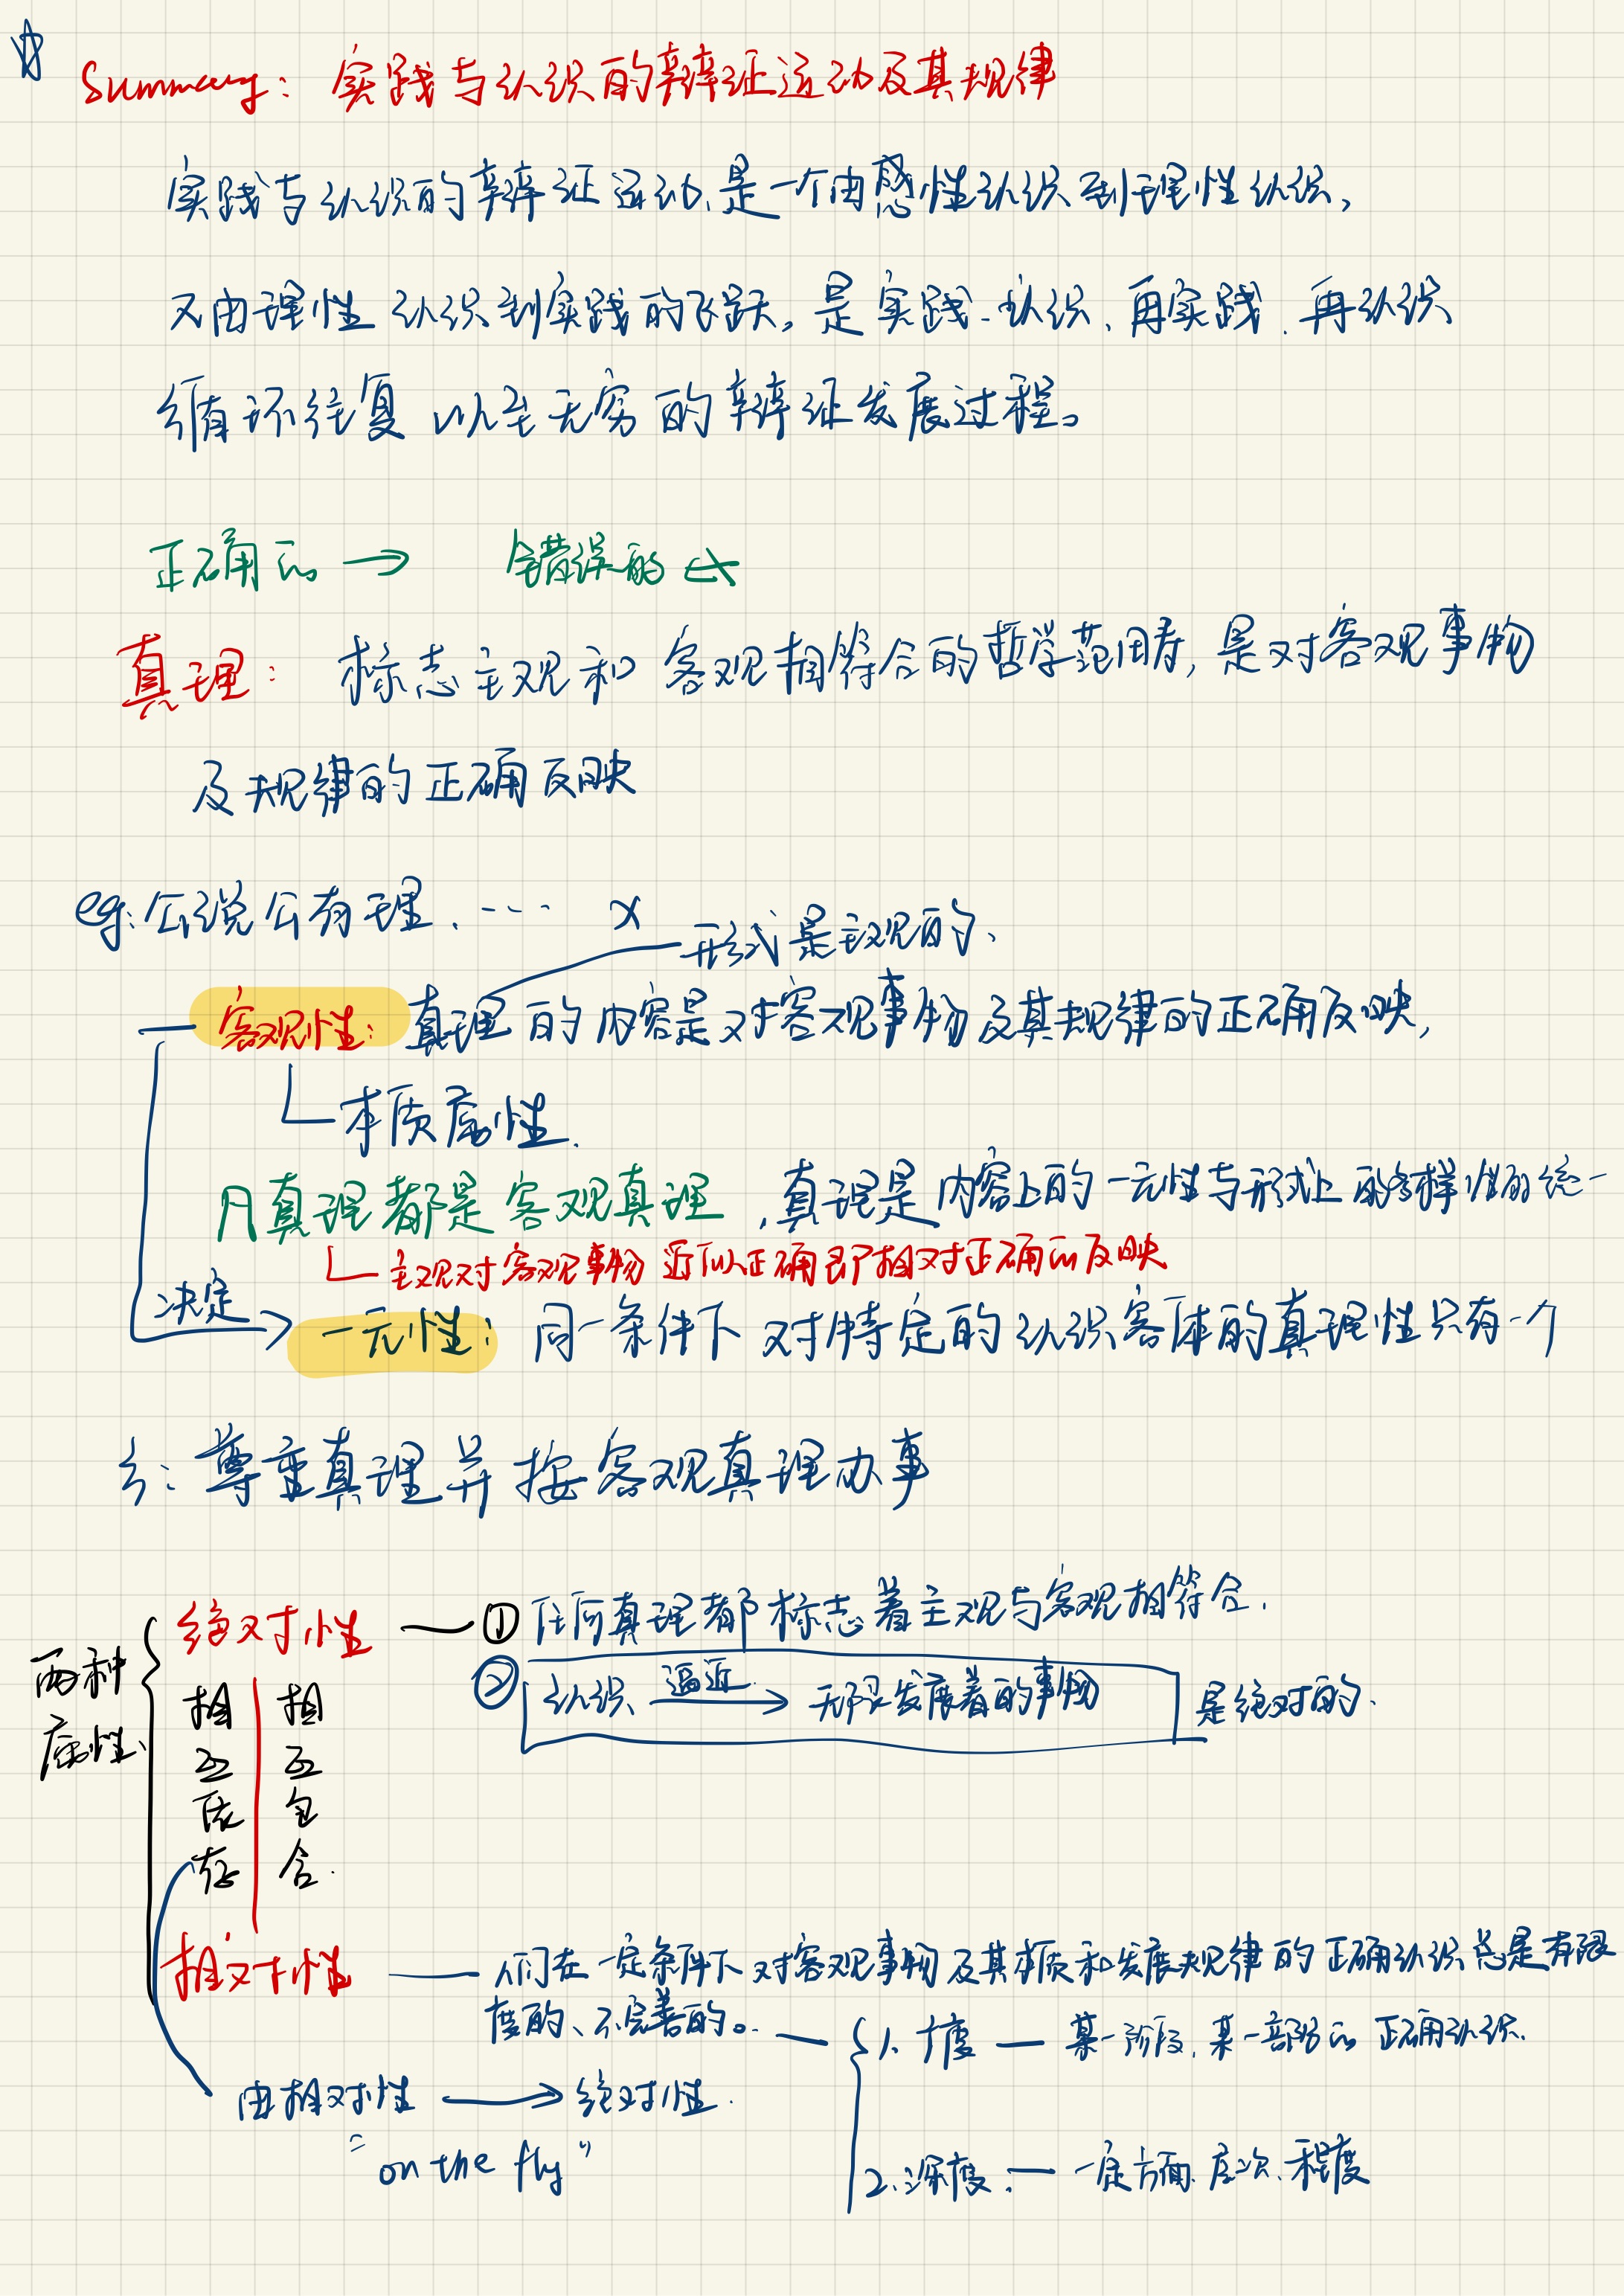 Summary: 实践与认识的辩证运动及其规律
实践与认识的辩证运动,是一个由感性认识到理性认识,
又由理性认识到实践的飞跃,是实践、认识、再实践、再认识
循环往复以至无穷的辩证发展过程。
正确的 → 错误的 ×
真理: 标志主观和客观相符合的哲学范畴,是对客观事物
及规律的正确反映
eg:公说公有理、…… ×
形式是主观的、
客观性: 真理的内容是对客观事物及其规律的正确反映,
本质属性.
凡真理都是客观真理,真理是内容上的一元性与形式上的多样性的统一
主观对客观事物近似正确即相对正确的反映
决定
一元性: 同一条件下对特定的认识客体的真理性只有一个
尊重真理并按客观真理办事
两种
属性
绝对性 — ① 任何真理都标志着主观与客观相符合.
② 认识 逼近 → 无限发展着的事物 是绝对的.
相互依存 相互包含.
相对性 — 人们在一定条件下对客观事物及其本质和发展规律的正确认识总是有限
度的、不完善的。
1. 广度 — 某一阶段,某一部分的正确认识.
由相对性 → 绝对性.
"on the fly"
2.深度: — 一定方面、层次、程度